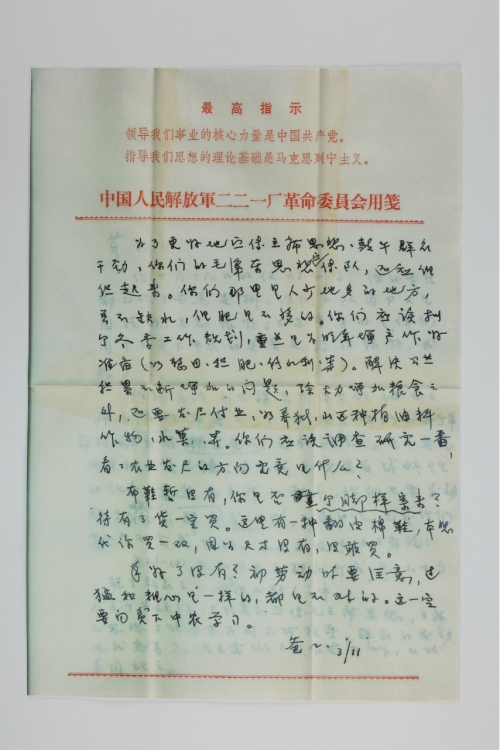 最高指示
领导我们事业的核心力量是中国共产党。
指导我们思想的理论基础是马克思列宁主义。
中国人民解放軍二二一厂革命委員会用箋
为了更好地宣传主席思想,鼓午群众
干劲,你们的毛泽东思想宣传队,还应组
织起来。你们那里是人少地多的地方,
又不缺水,但肥是不够的。你们应该制
订冬季工作规划,重点是为明年增产作好
准备(以
解决
积累不断增加的问题,除大力增加粮食之
外,还要发展付业,如养猪,以及种植油料
作物,水菓,菜。你们应该调查研究一番,
看看农业发展的方向究竟是什么?
布鞋暂没有,你是否画个脚样寄来?
待有了货一定买。这里有一种翻皮棉鞋,本想
代你买一双,因为尺寸没有,没敢买。
手好了没有?初劳动时要注意,过
猛和粗心是一样的,都是不对的。这一定
要向贫下中农学习。
爸爸 3/11